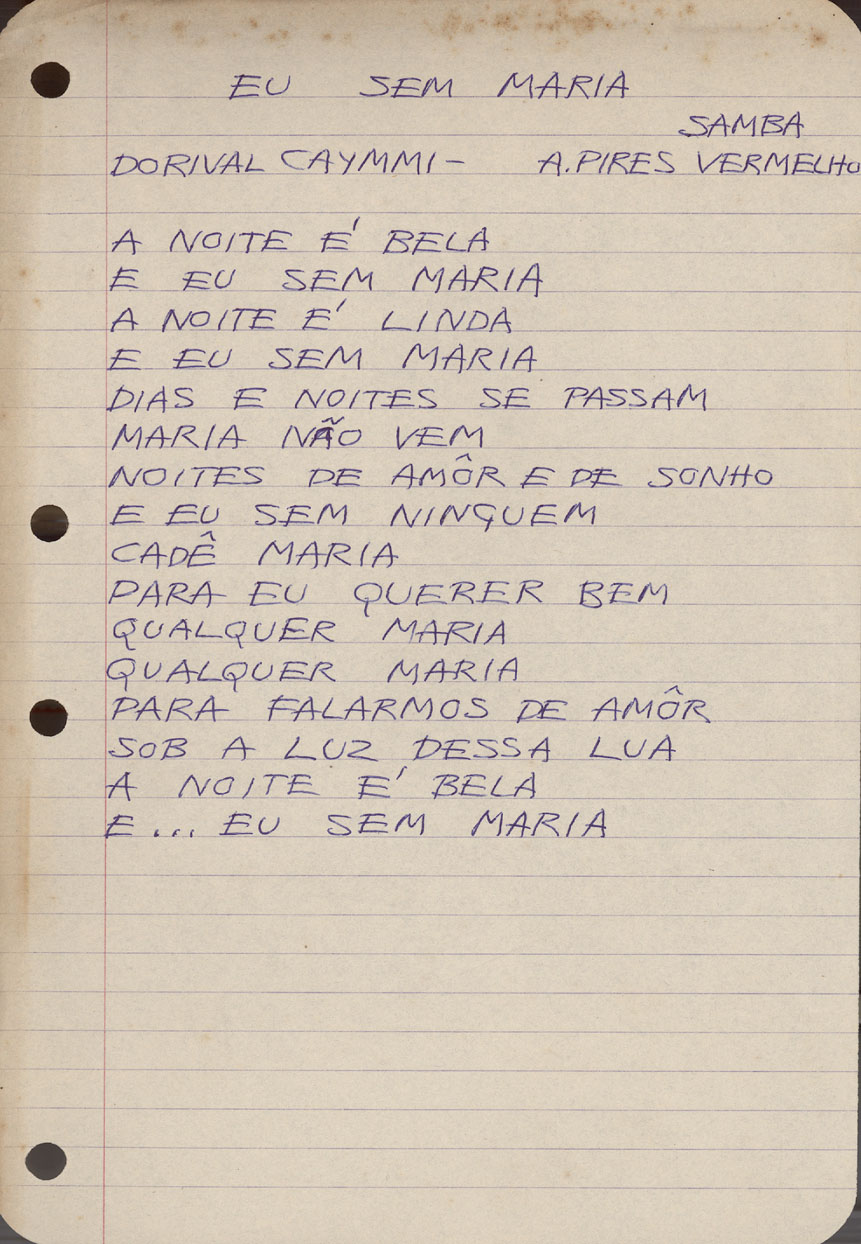 EU SEM MARIA
SAMBA
DORIVAL CAYMMI - A. PIRES VERMELHO
A NOITE É BELA
E EU SEM MARIA
A NOITE É LINDA
E EU SEM MARIA
DIAS E NOITES SE PASSAM
MARIA NÃO VEM
NOITES DE AMÔR E DE SONHO
E EU SEM NINGUEM
CADÊ MARIA
PARA EU QUERER BEM
QUALQUER MARIA
QUALQUER MARIA
PARA FALARMOS DE AMÔR
SOB A LUZ DESSA LUA
A NOITE É BELA
E... EU SEM MARIA